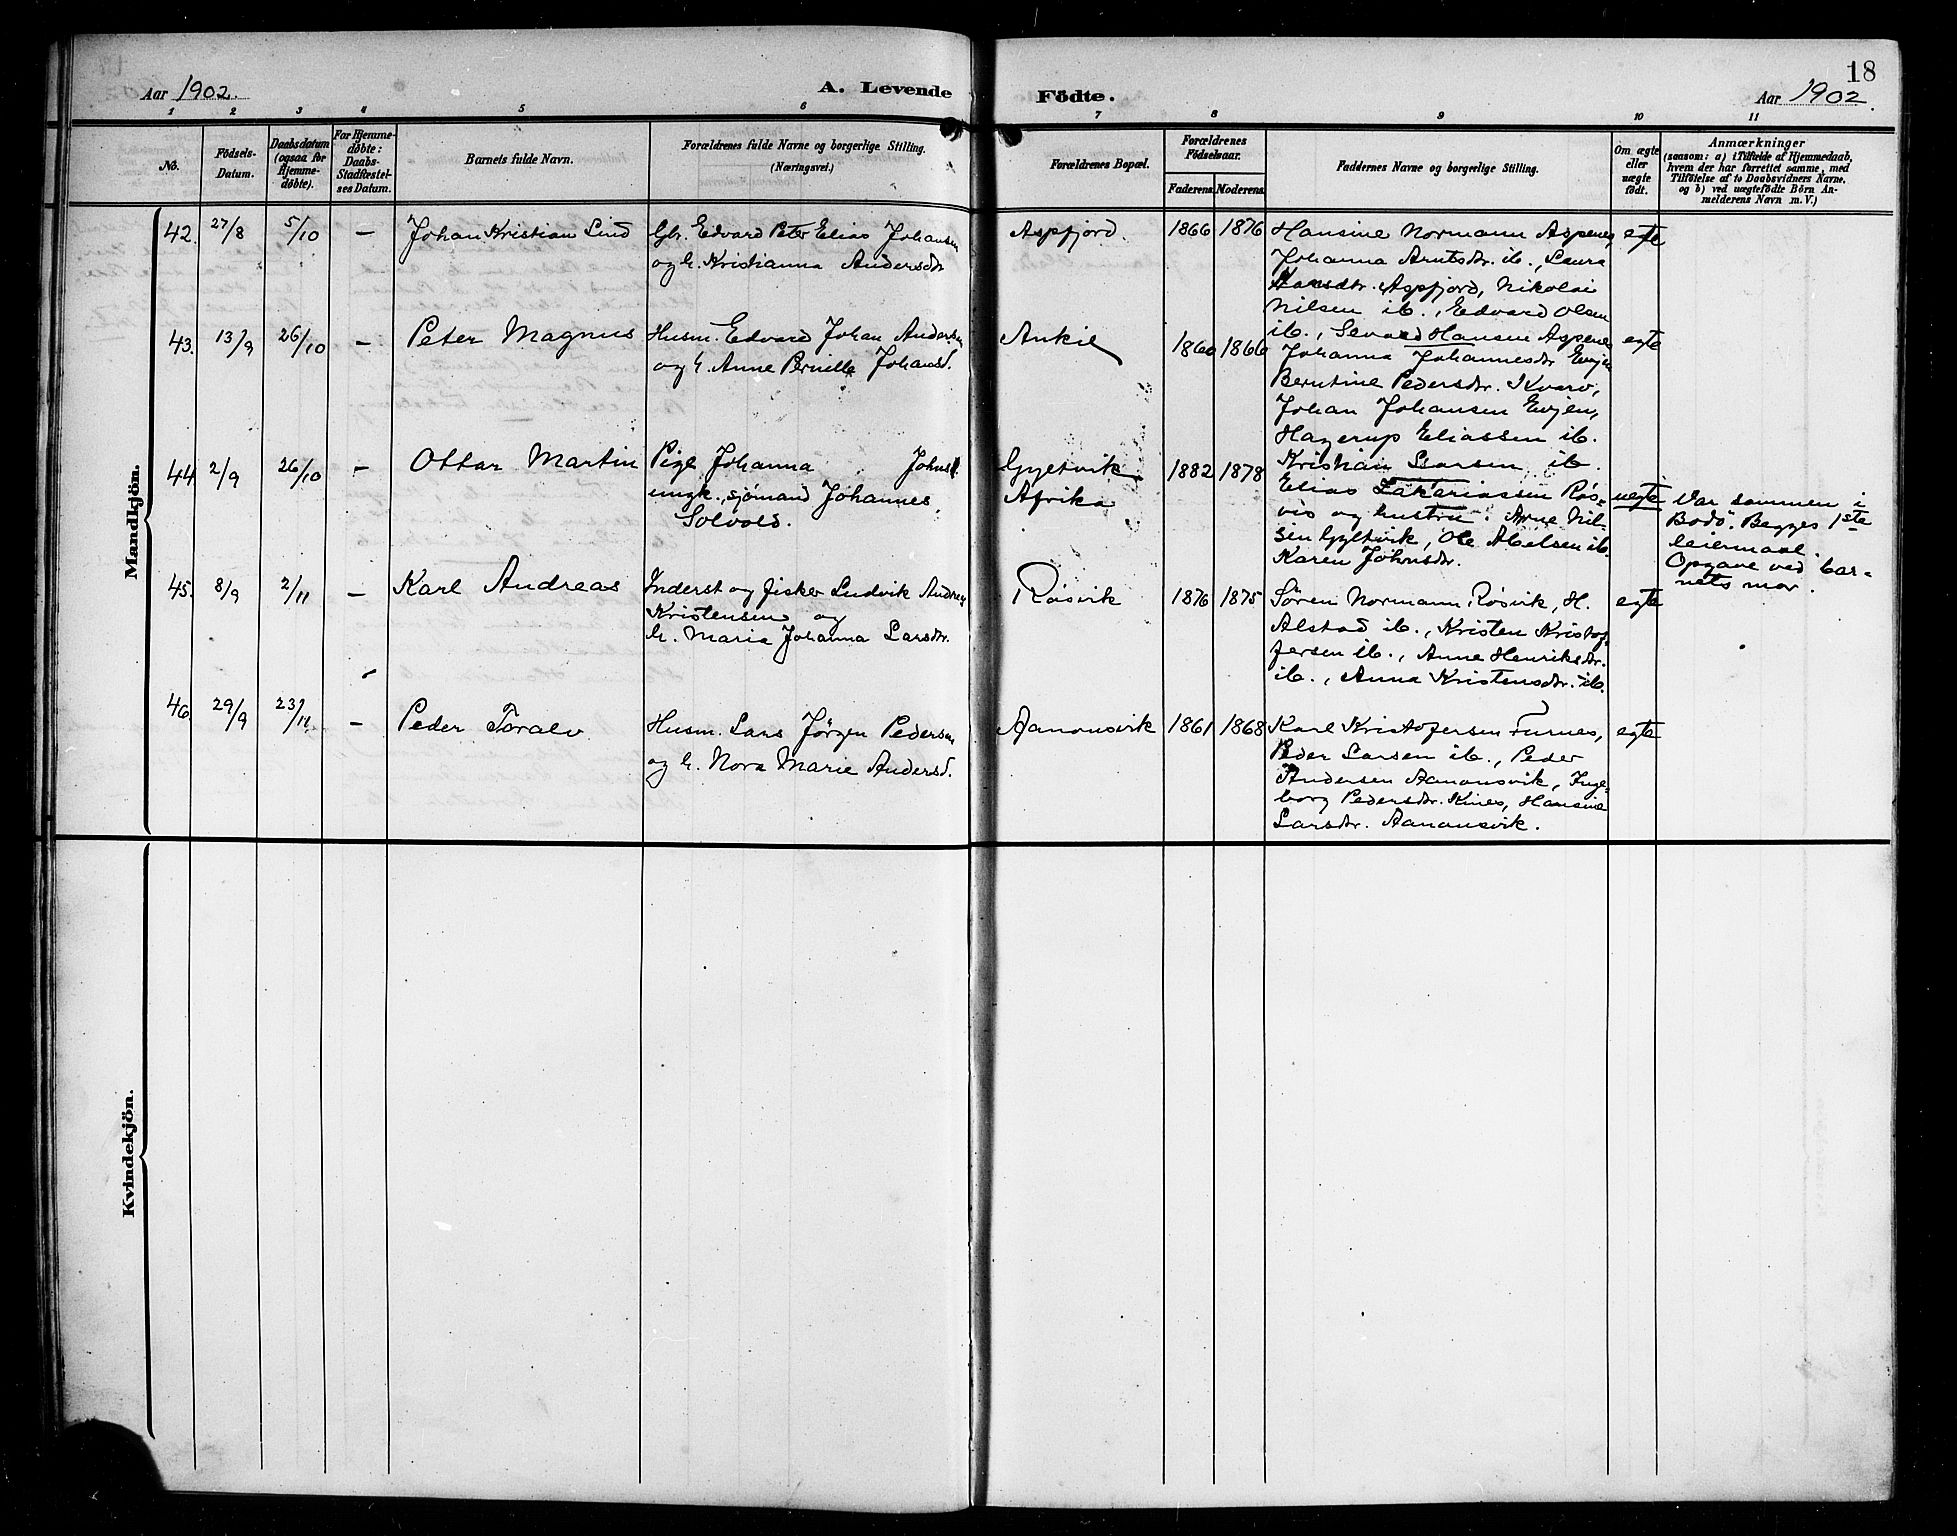 18
Aar 1902.
A. Levende
Födte.
Aar 1902.
1 2 3 4 5 6 7 8 9 10 11
No.
Födsels-
Datum.
Daabsdatum
(ogsaa for
Hjemme-
døbte).
For Hjemme-
døbte:
Daabs-
Stadfæstel-
ses Datum.
Barnets fulde Navn.
Forældrenes fulde Navne og borgerlige Stilling.
(Næringsvei.)
Forældrenes Bopæl.
Forældrenes
Fødselsaar.
Faderens. Moderens.
Faddernes Navne og borgerlige Stilling.
Om ægte
eller
uægte
født.
Anmærkninger
(saasom: a) i Tilfælde af Hjemmedaab,
hvem der har forrettet samme, med
Tilføielse af to Daabsvidners Navne,
og b) ved uægtefødte Børn An-
melderens Navn m. V.)
Mandkjön.
42. 27/8 5/10 — Johan Kristian Lind
Gbr. Edvard Peter Elias Johansen
og h. Kristianna Andersdr
Aspfjord. 1866 1876
Hansine Normann Aspenes
Johanna Arntsdr. ib., Laura
Hansdr. Aspfjord, Nikolai
Nilsen ib., Edvard Olsen
ib., Sevald Hansen Aspenes
egte
43. 13/9 26/10 — Peter Magnus
Husm. Edvard Johan Andersen
og h. Anne Pernille Johansd.
1860 1866
Johanna Johannesdr Evjen
Berntine Pedersdr. Kvarv,
Johan Johansen Evjen,
Hagerup Eliassen ib.
Kristian Larsen ib.
egte
44. 2/9 26/10 — Ottar Martin
Pige Johanna Johnsd.
ungk., sjømand Johannes
Solvold.
Gyltvik
Afrika
1882 1878
Elias Zakariassen Røs-
vik og hustru. Arne Nil-
sen Gyltvik, Ole Abelsen ib.
Karen Johnsdr.
uegte
Var sammen i
Bodö. Begges 1ste
leiermaal.
Opgave ved bar-
nets mor.
45. 8/9 2/11 — Karl Andreas
Inderst og fisker Ludvik Andreas
Kristensen og
h. Maria Johanna Larsdr.
Røsvik 1876 1875
Søren Normann Røsvik, H.
Alstad ib., Kristen Kristof-
fersen ib., Anne Henriksdr.
ib., Anna Kristensdr. ib.
egte
46. 29/9 23/11 — Peder Toralv
Husm. Lars Jørgen Pedersen
og h. Nora Marie Andersd.
Aanonsvik 1861 1868
Karl Kristofersen Furnes,
Peder Larsen ib., Peder
Andersen Aanonsvik, Inge-
borg Pedersdr. Kines, Hansine
Larsdr. Aanonsvik.
egte
Kvindekjön.